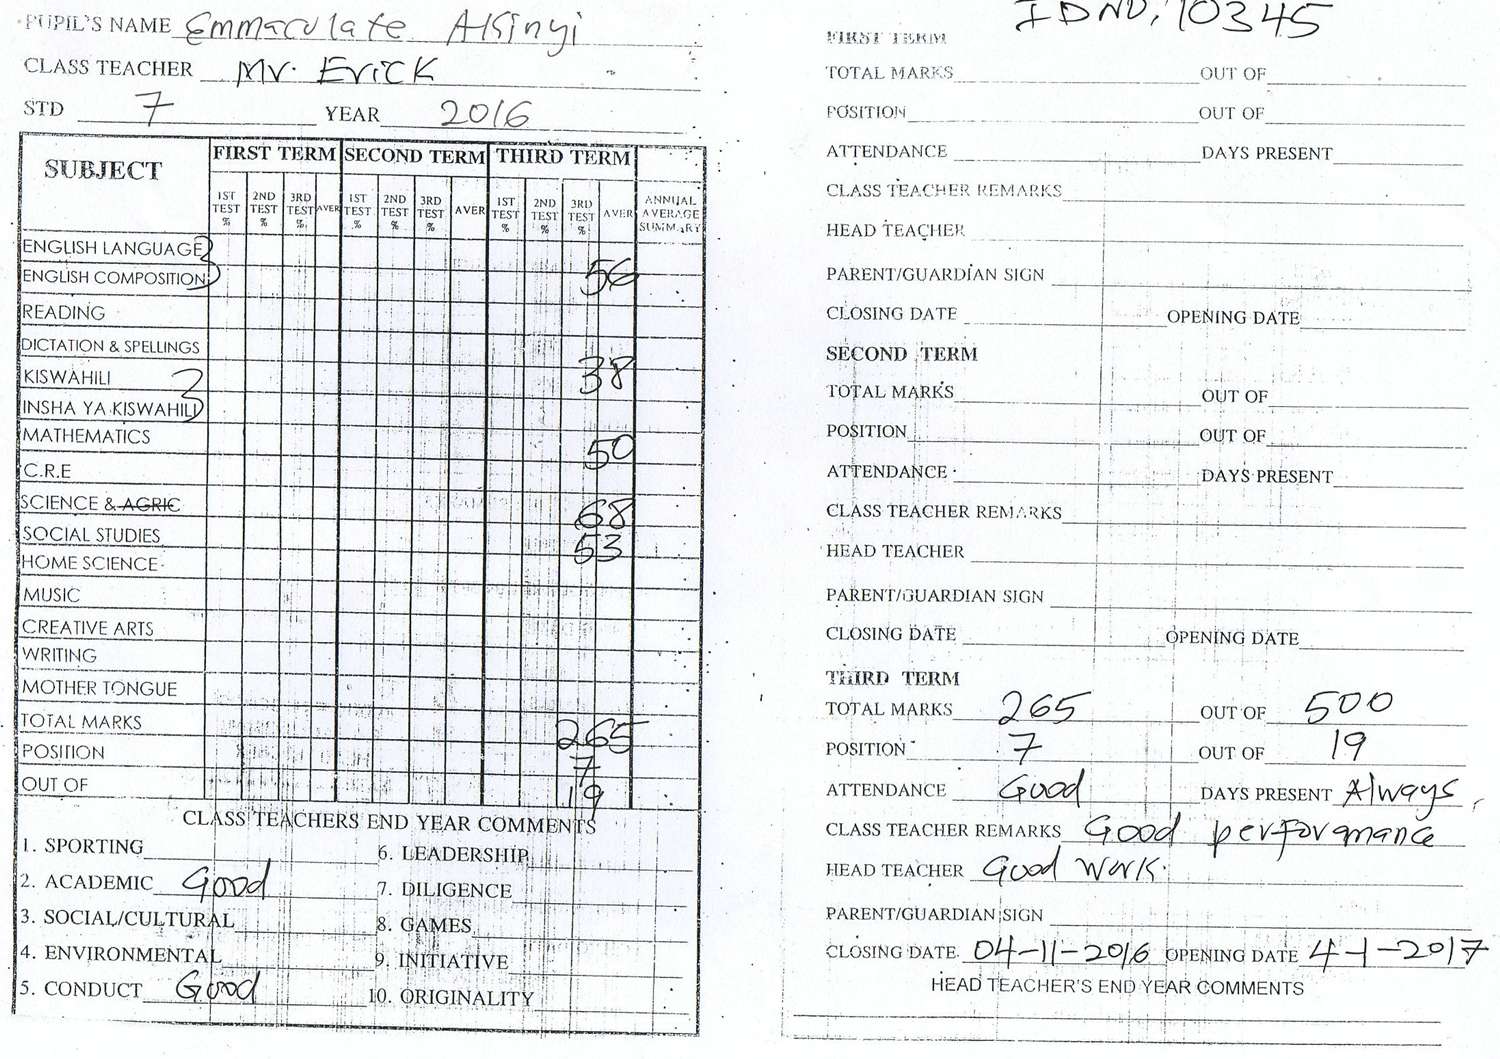 PUPIL'S NAME Emmaculate Alsinyi
CLASS TEACHER Mr. Erick
STD 7 YEAR 2016
SUBJECT FIRST TERM SECOND TERM THIRD TERM
1ST TEST % 2ND TEST % 3RD TEST % AVER 1ST TEST % 2ND TEST % 3RD TEST % AVER 1ST TEST % 2ND TEST % 3RD TEST % AVER ANNUAL AVERAGE SUMMARY
ENGLISH LANGUAGE
ENGLISH COMPOSITION 56
READING
DICTATION & SPELLINGS
KISWAHILI 38
INSHA YA KISWAHILI
MATHEMATICS 50
C.R.E
SCIENCE & AGRIC 68
SOCIAL STUDIES 53
HOME SCIENCE
MUSIC
CREATIVE ARTS
WRITING
MOTHER TONGUE
TOTAL MARKS 265
POSITION 7
OUT OF 19
CLASS TEACHERS END YEAR COMMENTS
1. SPORTING 6. LEADERSHIP
2. ACADEMIC Good 7. DILIGENCE
3. SOCIAL/CULTURAL 8. GAMES
4. ENVIRONMENTAL 9. INITIATIVE
5. CONDUCT Good 10. ORIGINALITY
ID NO. 10345
FIRST TERM
TOTAL MARKS OUT OF
POSITION OUT OF
ATTENDANCE DAYS PRESENT
CLASS TEACHER REMARKS
HEAD TEACHER
PARENT/GUARDIAN SIGN
CLOSING DATE OPENING DATE
SECOND TERM
TOTAL MARKS OUT OF
POSITION OUT OF
ATTENDANCE DAYS PRESENT
CLASS TEACHER REMARKS
HEAD TEACHER
PARENT/GUARDIAN SIGN
CLOSING DATE OPENING DATE
THIRD TERM
TOTAL MARKS 265 OUT OF 500
POSITION 7 OUT OF 19
ATTENDANCE Good DAYS PRESENT Always
CLASS TEACHER REMARKS Good performance
HEAD TEACHER Good work.
PARENT/GUARDIAN SIGN
CLOSING DATE 04-11-2016 OPENING DATE 4-1-2017
HEAD TEACHER'S END YEAR COMMENTS